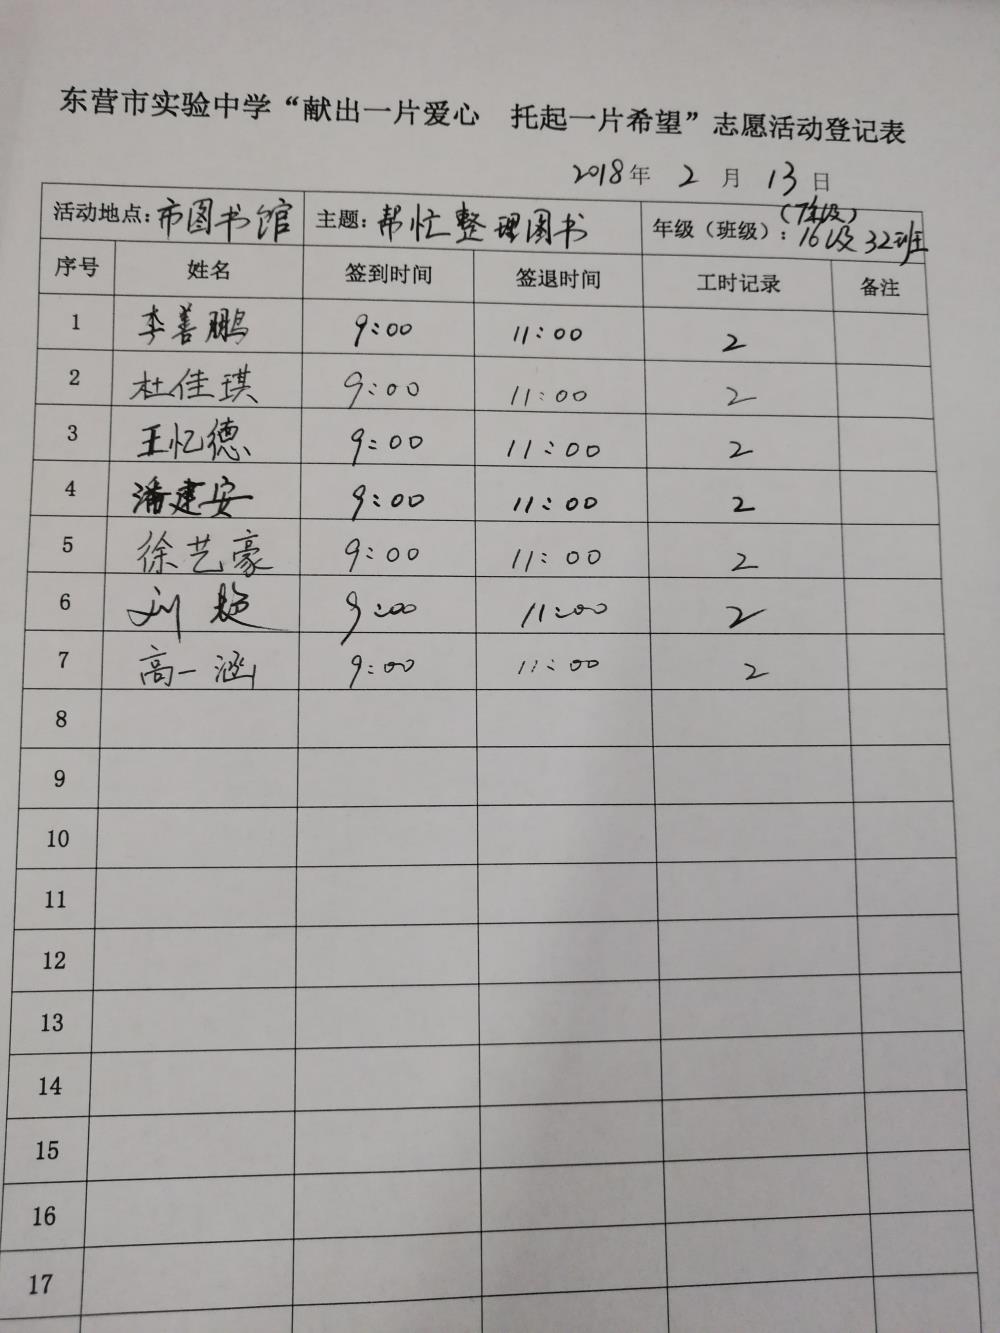 东营市实验中学“献出一片爱心 托起一片希望”志愿活动登记表
2018年 2 月 13 日
活动地点：市图书馆 主题：帮忙整理图书 年级（班级）：16级32班
序号 姓名 签到时间 签退时间 工时记录 备注
1 李善鹏 9:00 11:00 2
2 杜佳琪 9:00 11:00 2
3 王忆德 9:00 11:00 2
4 潘建安 9:00 11:00 2
5 徐艺豪 9:00 11:00 2
6 刘 9:00 11:00 2
7 高一涵 9:00 11:00 2
8
9
10
11
12
13
14
15
16
17